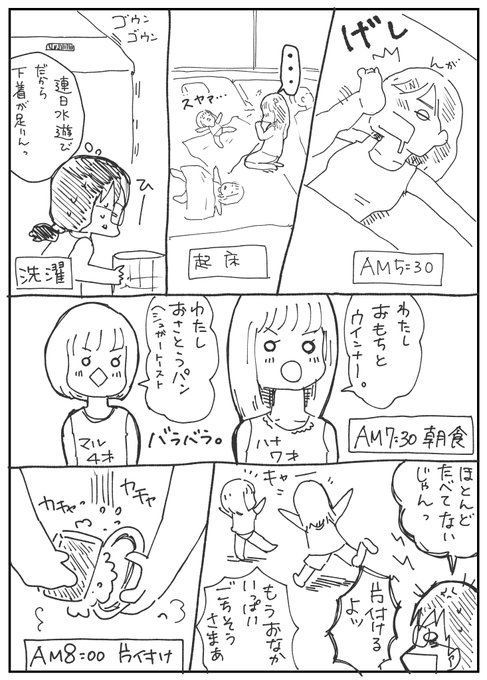 げし
んが
AM5:30
スヤマ…
起床
ゴウン
ゴウン
連日水遊び
だから
下着が足りんっ
ひー
洗濯
わたし
おもちと
ウインナー。
AM7:30 朝食
ハナ
7才
わたし
おさとうパン
(シュガートースト
マル
4才
バラバラ。
ほとんど
たべてない
じゃんっ
片付ける
よッ
キャー
もうおなか
いっぱい
ごちそう
さまぁ
カチャ
カチャ
AM8:00 片付け